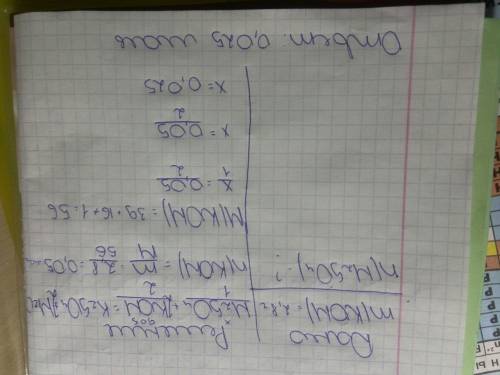 Дано
m(KOH) = 2,8г
n(H₂SO₄) - ?
Решение
x 0,05
H₂SO₄ + 2KOH = K₂SO₄ + 2H₂O
1 2
n(KOH) = m/M = 2,8/56 = 0,05
M(KOH) = 39+16+1=56
x/1 = 0,05/2
x = 0,05/2
x = 0,025
Ответ: 0,025 моль